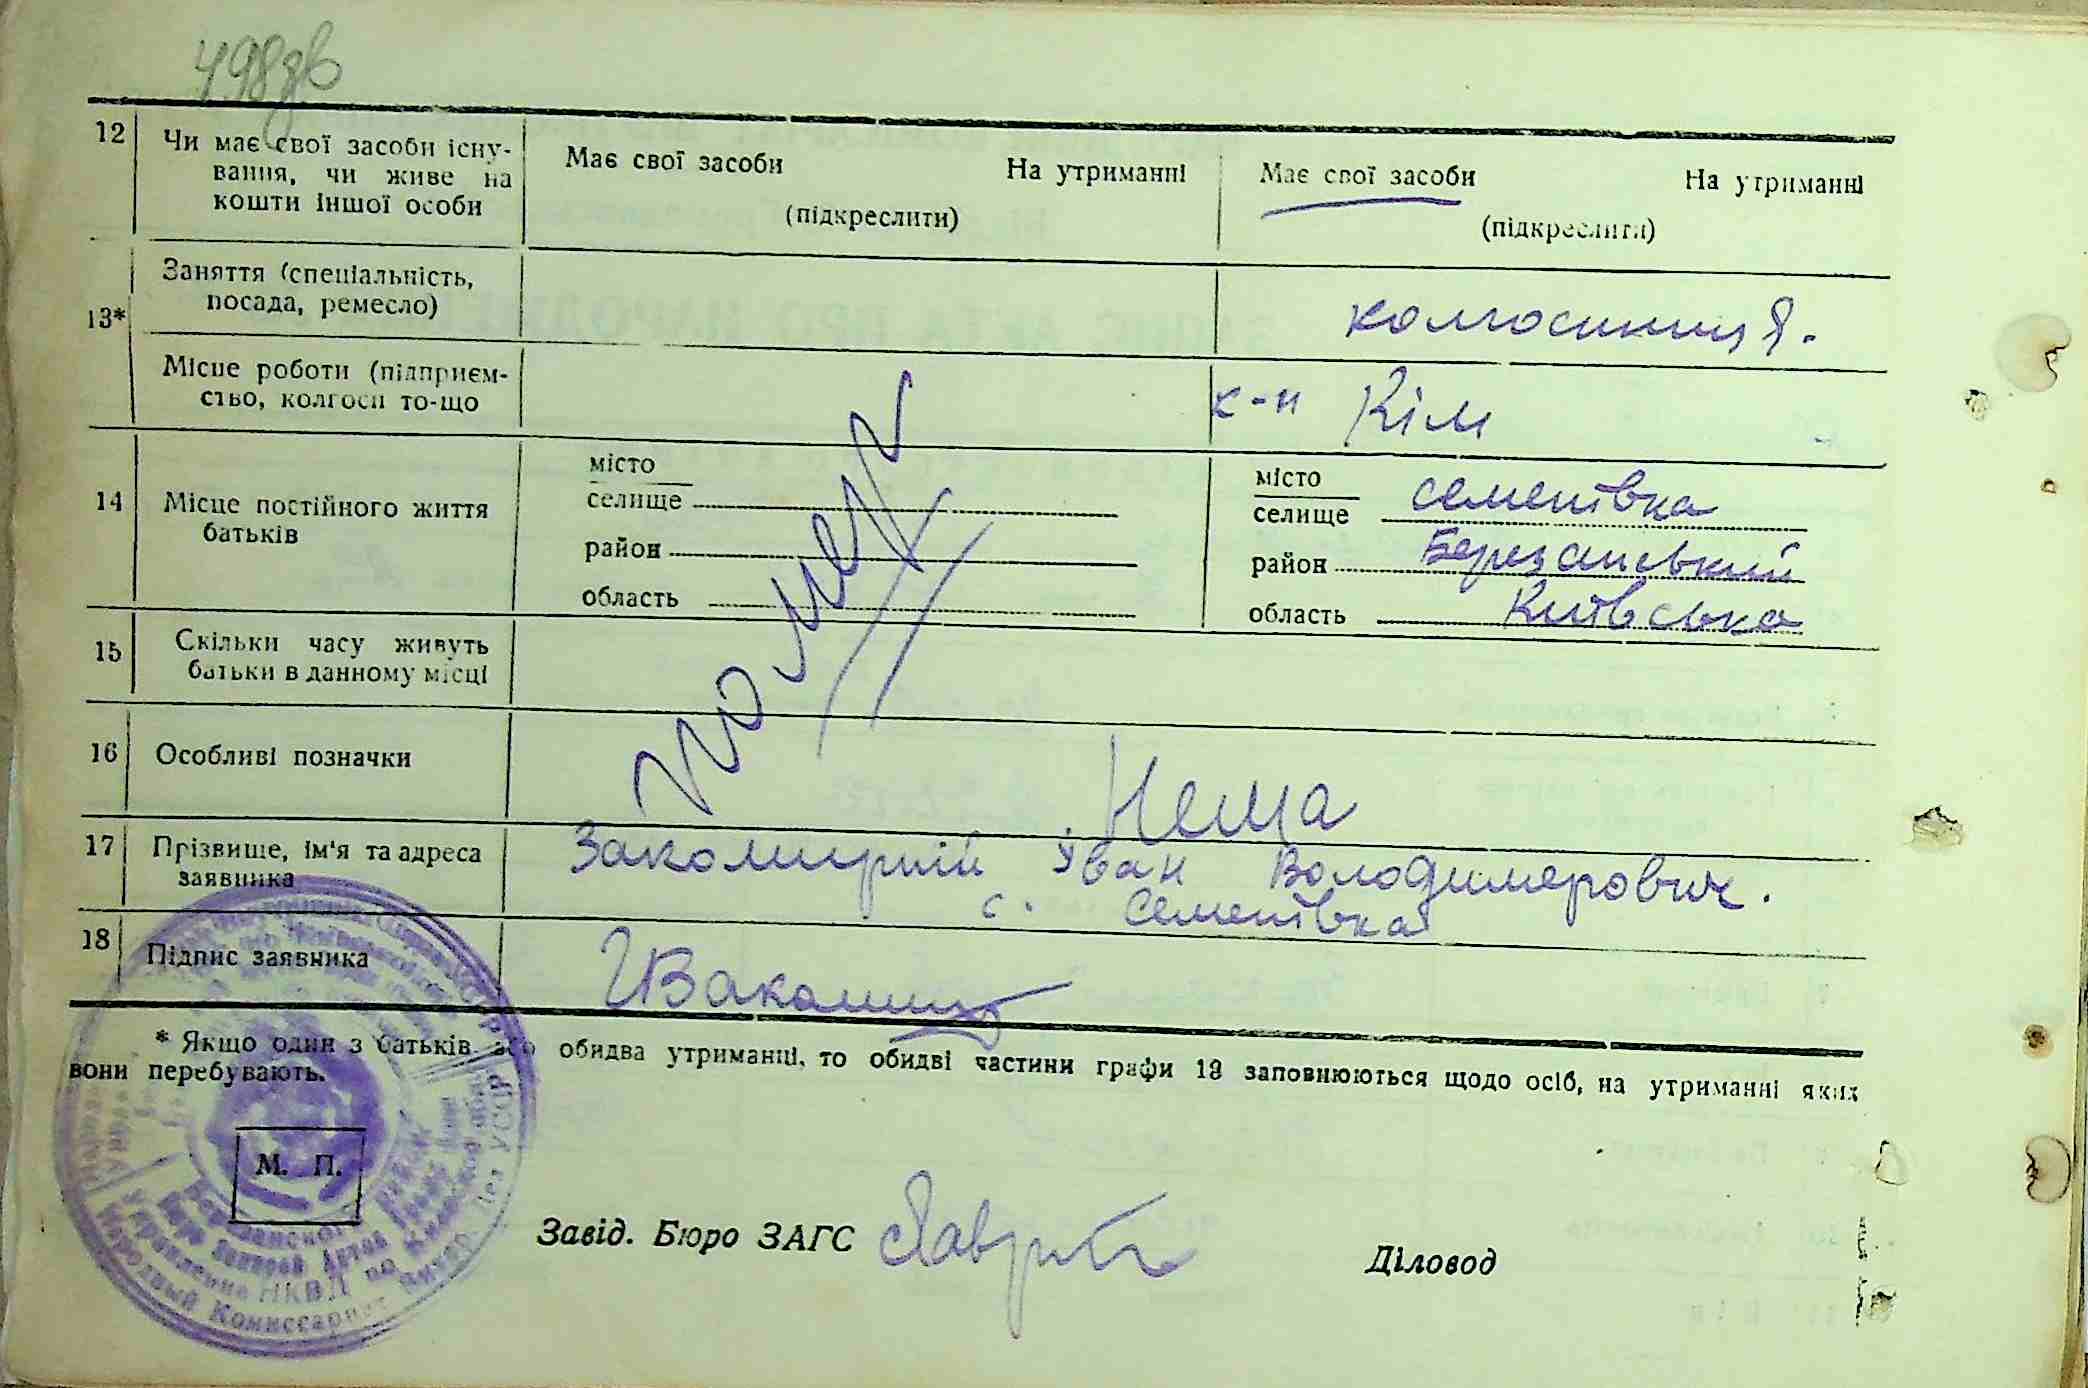 498зв
12 Чи має свої засоби існу-
вання, чи живе на
кошти іншої особи
Має свої засоби На утриманні
(підкреслити)
Має свої засоби На утриманні
(підкреслити)
13* Заняття (спеціальність,
посада, ремесло)
колгоспниця.
Місце роботи (підприєм-
ство, колгосп то-що
к-п Кім
14 Місце постійного життя
батьків
місто
селище
район
область
місто
селище Семенівка
район Березанський
область Київська
помер
15 Скільки часу живуть
батьки в данному місці
16 Особливі позначки
Нема
17 Прізвище, ім'я та адреса
заявника
Закомирний Іван Володимерович.
с. Семенівка
18 Підпис заявника
* Якщо один з батьків або обидва утриманці, то обидві частини графи 13 заповнюються щодо осіб, на утриманні яких
вони перебувають.
М. П.
Завід. Бюро ЗАГС
Діловод
Бюро Записей Актов
Управление НКВД по Киевской
Народный Комиссариат Внутр. Дел УССР